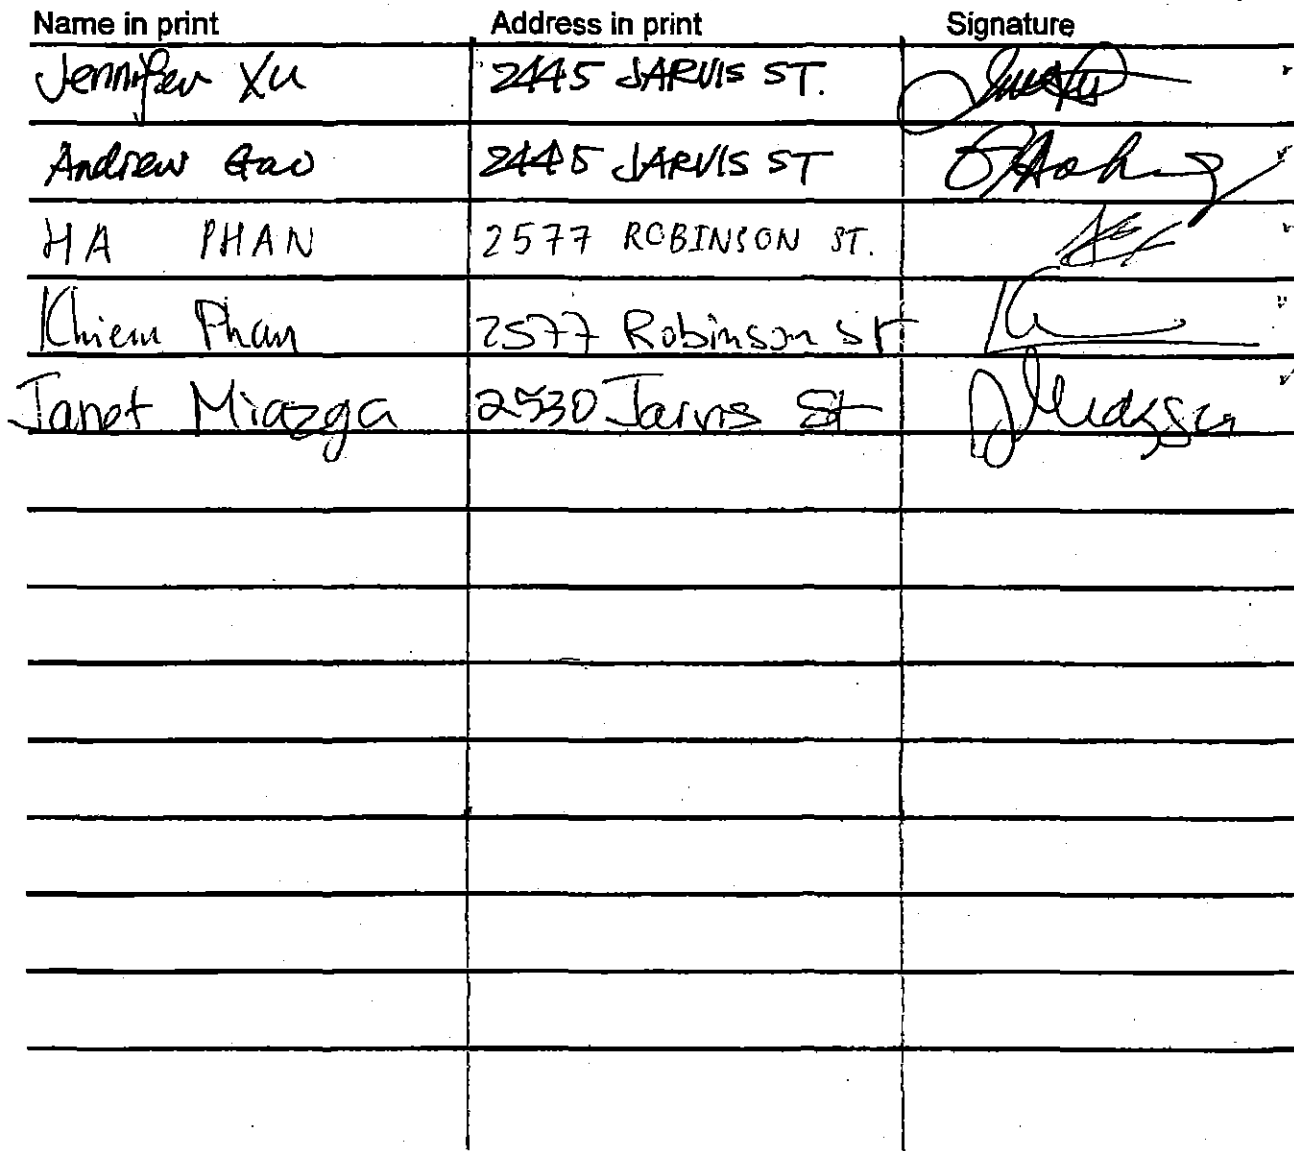 Name in print Address in print Signature
Jennifer Xu 2445 JARVIS ST.
Andrew Gao 2445 JARVIS ST
HA PHAN 2577 ROBINSON ST.
Khiem Phan 2577 Robinson st
Janet Miazga 2530 Jarvis St